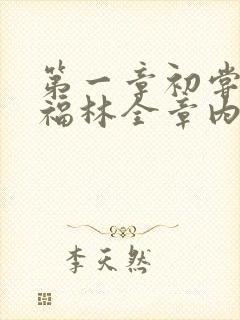 第一章初尝
福林全章内
李天然